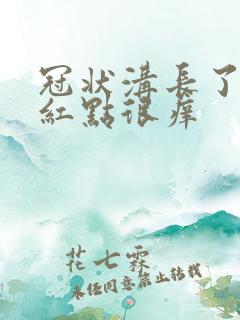 冠状溝長了
紅點很癢
花七霖
未经同意禁止转载